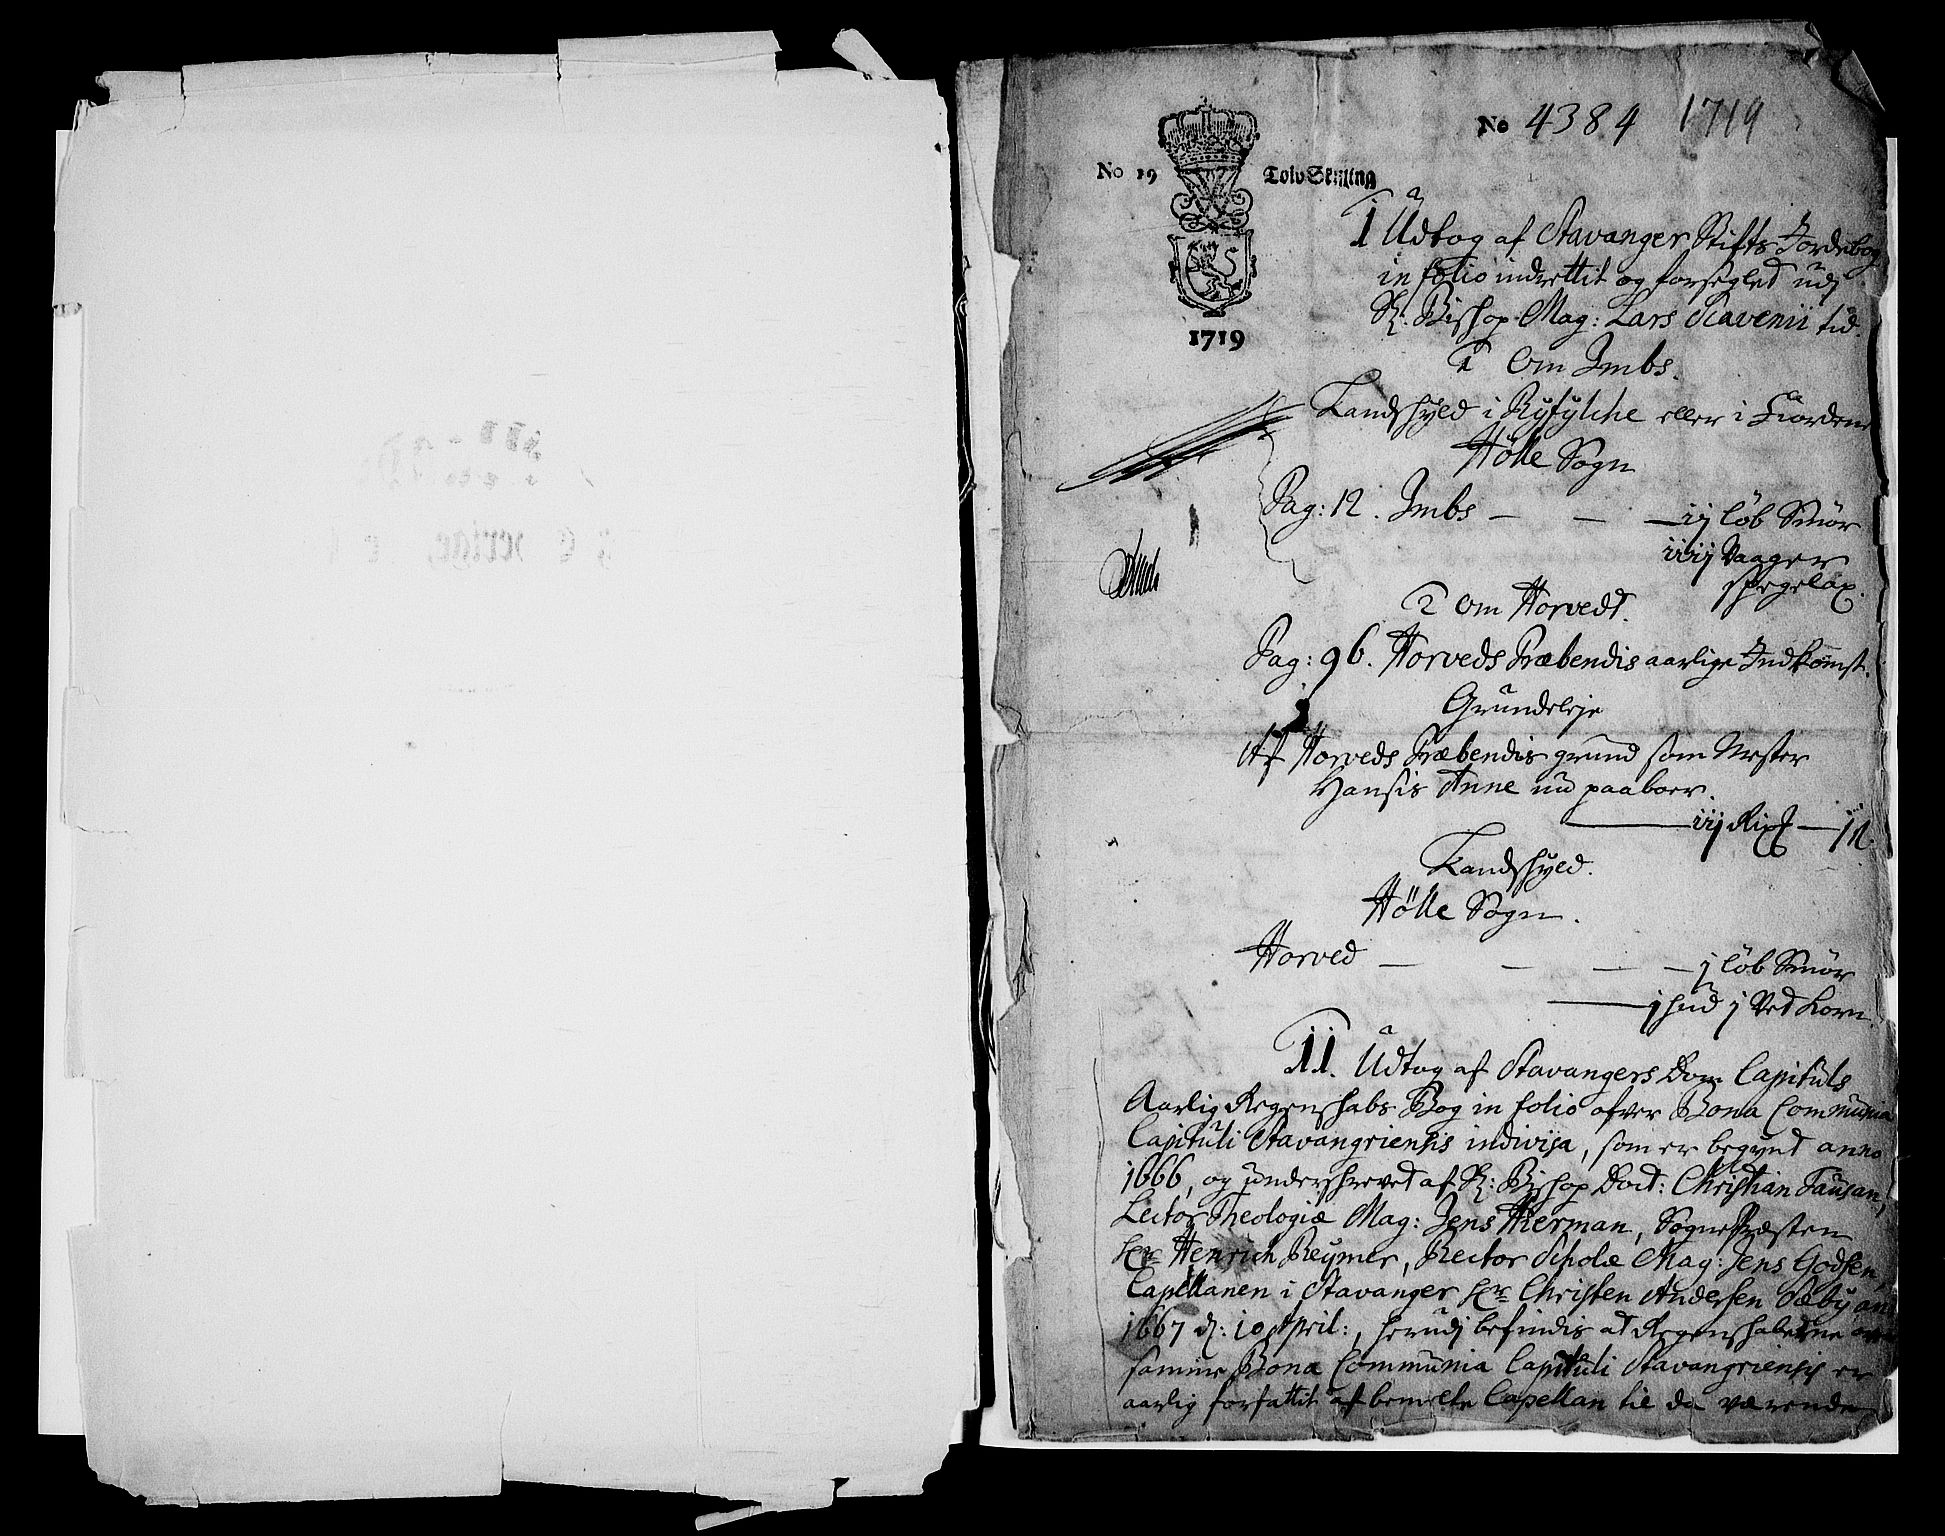 No 4384 1719
No 19 Tolv Skilling
1719
I Udtog af Stavanger Stifts Jordebog
in folio indrettit og forseglet udj
S: Bishop Mag: Lars Scavenii tid.
1 Om Jmbs.
Landskyld i Ryfylche eller i Fiordene
Hölle Sogn
Pag: 12. Jmbs — — — iij löb Smör
iiij Vaager
spegelax.
2 Om Horvedt.
Pag: 96. Horveds Præbendis aarlige Indkomst.
Grundeleje
Af Horveds Præbendis grund som Mester
Hansis Anne nu paaboer.
iij Rixd — j
Landskyld.
Hölle Sogn.
Horved — — — — j löb Smör
j hud j Ved Korn.
II. Udtog af Stavangers Dom Capituls
Aarlig Regenskabs Bog in folio ofver Bona Communia
Capituli Stavangriensis indivisa, som er begynt anno
1666, og underskrevet af S: Bishop Doct: Christian Tausan,
Lector Theologiæ Mag: Jens Hierman, Sognepræsten
Hr Henrich Reymer, Rector Scholæ Mag: Jens Godsen,
Capellanen i Stavanger Hr Christen Andersen Sæby an
1667 d: 10 April:, herudj befindis at Regenskaberne
samme Bona Communia Capituli Stavangriensis er
aarlig forfattit af bemelte Capellan til da værende